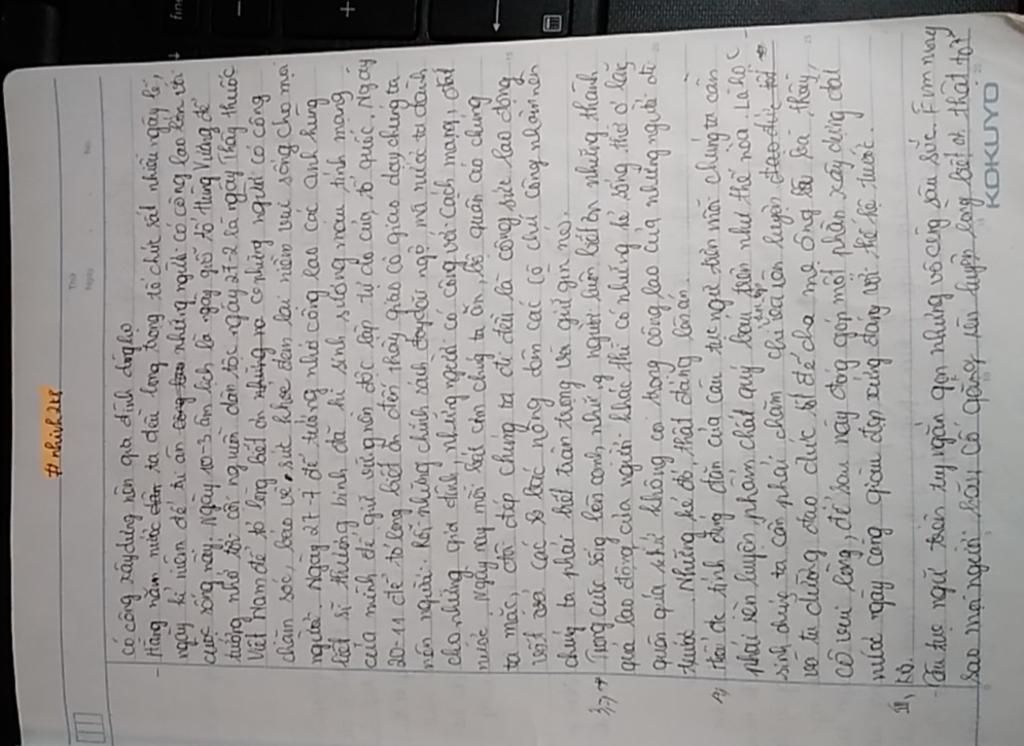 #nhish248
Thứ
Ngày
No.
có công xây dựng nên gia đình dòng họ
- Hằng năm nước ta đều long trọng tổ chức rất nhiều ngày lễ,
ngày kỉ niệm để tri ân những người có công lao lớn với
cuộc sống này. Ngày 10-3 âm lịch là ngày giỗ tổ Hùng Vương để
tưởng nhớ tới cội nguồn dân tộc. ngày 27-2 là ngày Thầy thuốc
Việt Nam để tỏ lòng biết ơn những người có công
chăm sóc, bảo vệ sức khỏe đem lại niềm vui sống cho mọi
người. Ngày 27-7 để tưởng nhớ công lao các anh hùng
liệt sĩ thương binh đã hi sinh xương máu tính mạng
của mình để giữ vững nền độc lập tự do của tổ quốc. Ngày
20-11 để tỏ lòng biết ơn đến thầy giáo cô giáo dạy chúng ta
nên người. Rồi những chính sách đãi ngộ mà nước ta dành
cho những gia đình, những người có công với cách mạng, đất
nước. Ngày nay mỗi bát cơm chúng ta ăn, bộ quần áo chúng
ta mặc, đôi dép chúng ta đi đều là công sức lao động
vất vả các bác nông dân các cô chú công nhân nên
chúng ta phải biết trân trọng và giữ gìn nó.
3, → Trong cuộc sống bên cạnh những người luôn biết ơn những thành
quả lao động của người khác thì có những kẻ sống thờ ơ lãng
quên quá khứ không coi trọng công lao của những người đi
trước. Những kẻ đó thật đáng lên án.
4, Thấy được tính đúng đắn của câu tục ngữ trên mỗi chúng ta cần
phải rèn luyện phẩm chất quý báu trên như thế nào. Là học
sinh chúng ta cần phải chăm chỉ học tập rèn luyện đạo đức tốt
và tu dưỡng đạo đức tốt để cha mẹ ông bà thầy
cô vui lòng, để sau này đóng góp một phần xây dựng đất
nước ngày càng giàu đẹp xứng đáng với thế hệ trước.
III, KB.
- Câu tục ngữ trên tuy ngắn gọn nhưng vô cùng sâu sắc. Em mong
sao mọi người hãy cố gắng rèn luyện lòng biết ơn thật tốt
KOKUYO